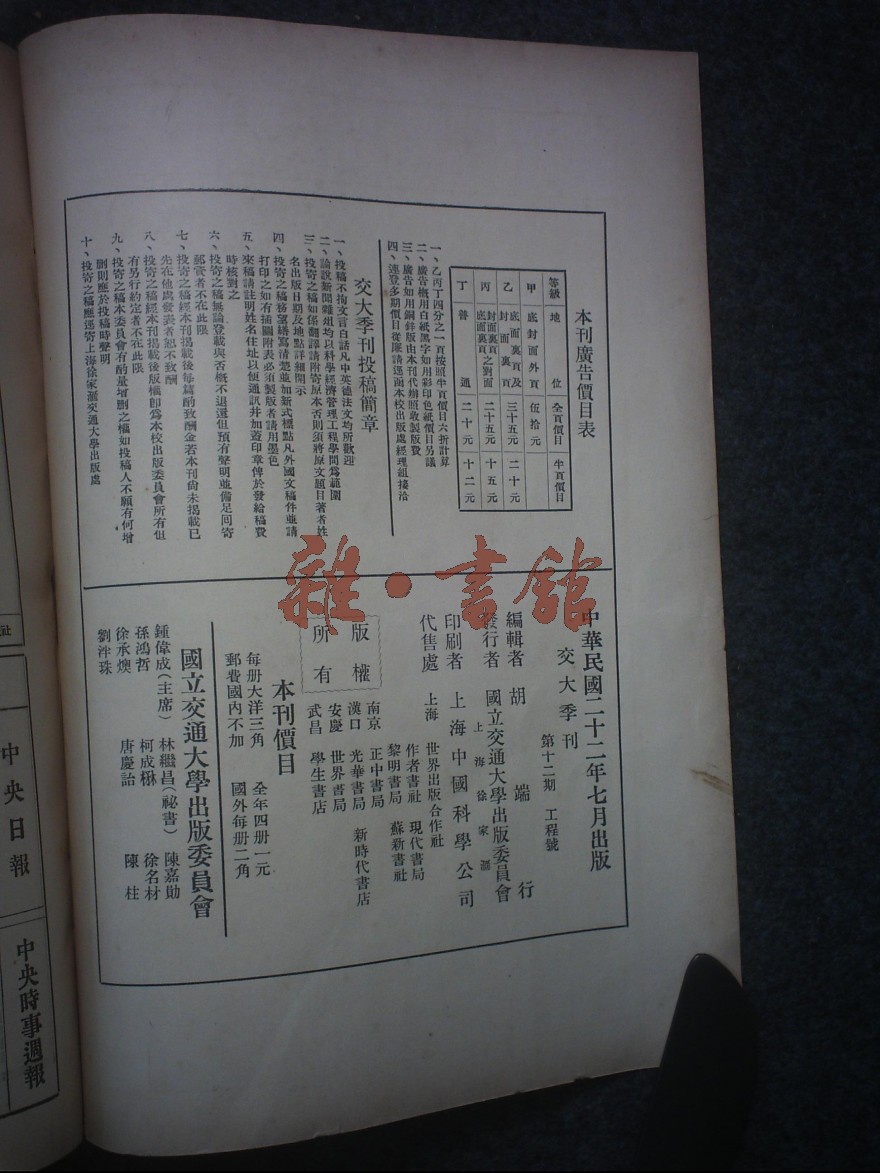 本刊廣告價目表
等級 地位 全頁價目 半頁價目
甲 底封面外頁 伍拾元
乙 底面裏頁及封面裏頁 三十五元 二十元
丙 封面裏頁之對面底面裏頁 二十五元 十五元
丁 普通 二十元 十二元
一、乙丙丁四分之一頁按照半頁價目六折計算
二、廣告概用白紙黑字如用彩印色紙價目另議
三、廣告如用銅鋅版由本刊代辦照收製版費
四、連登多期價目從廉請逕函本校出版處經理組接洽
交大季刊投稿簡章
一、投稿不拘文言白話凡中英德法文均所歡迎
二、論說新聞雜俎均以科學經濟管理工程學問爲範圍
三、投寄之稿如係翻譯請附寄原本否則須將原文題目著者姓
名出版日期及地點詳細開示
四、投寄之稿務望繕寫清楚並加新式標點凡外國文稿件並請
打印之如有插圖附表必須製版者請用墨色
五、來稿請註明姓名住址以便通訊并加蓋印章俾於發給稿費
時核對之
六、投寄之稿無論登載與否概不退還但預有聲明並備足回寄
郵資者不在此限
七、投寄之稿經本刊揭載後每篇酌致酬金若本刊尚未揭載已
先在他處發表者恕不致酬
八、投寄之稿經本刊揭載後版權卽爲本校出版委員會所有但
有另行約定者不在此限
九、投寄之稿本委員會有酌量增刪之權如投稿人不願有何增
刪則應於投稿時聲明
十、投寄之稿應逕寄上海徐家滙交通大學出版處
中華民國二十二年七月出版
交大季刊 第十二期 工程號
編輯者 胡端行
發行者 國立交通大學出版委員會
上海徐家滙
印刷者 上海中國科學公司
代售處 上海 世界出版合作社
作者書社 現代書局
黎明書局 蘇新書社
南京 正中書局
漢口 光華書局 新時代書店
安慶 世界書局
武昌 學生書店
版權
所有
本刊價目
每册大洋三角 全年四册一元
郵費國內不加 國外每册二角
國立交通大學出版委員會
鍾偉成(主席) 林繼昌(祕書) 陳嘉勛
孫鴻哲 柯成楙 徐名材
徐承燠 唐慶詒 陳柱
劉泮珠
雜·書館
社
中央日報
中央時事週報